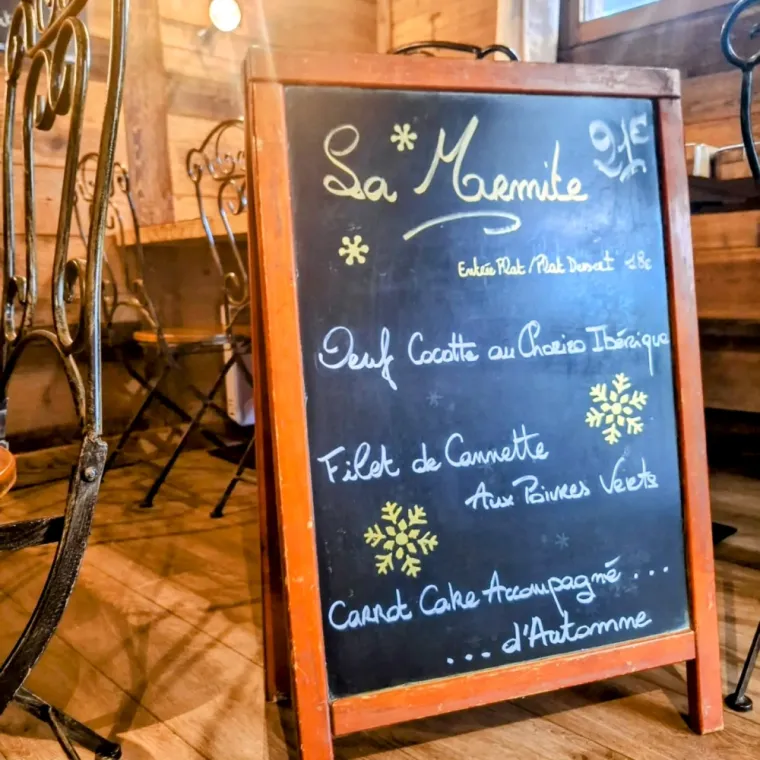 La Marmite 21€
Entrée Plat / Plat Dessert 18€
Oeuf Cocotte au Chorizo Ibérique
Filet de Cannette
Aux Poivres Verts
Carrot Cake Accompagné ...
... d'Automne